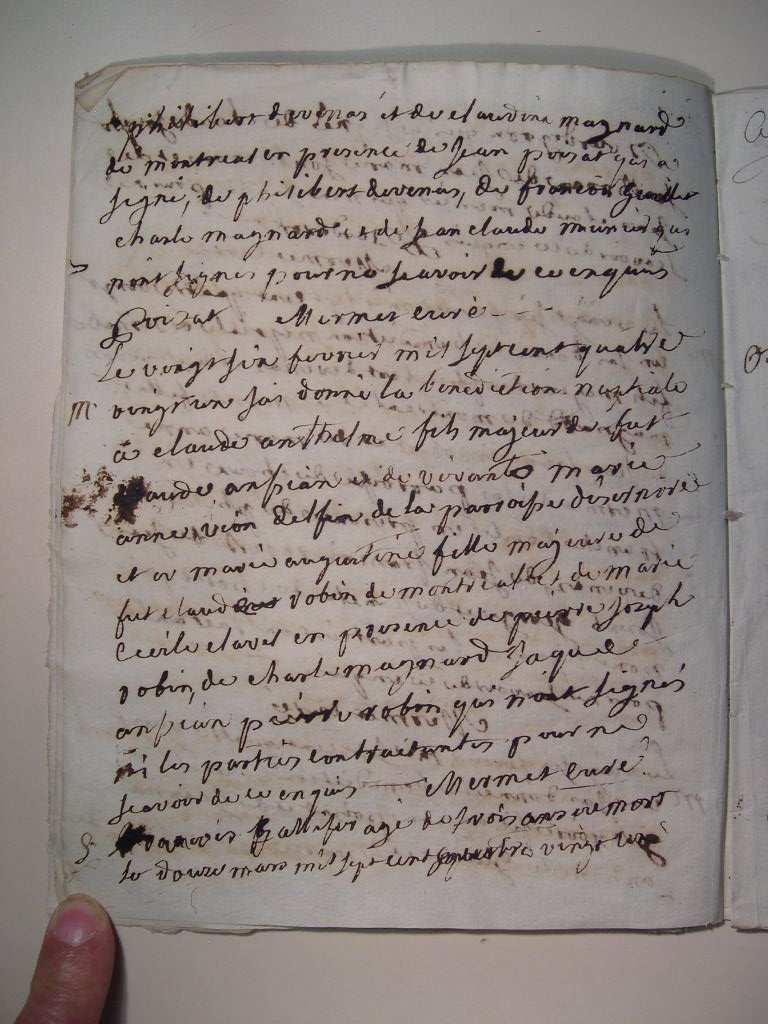 philibert devenas et de claudine magnard
de montreal en presence de Jean poisat qui a
signe, de philibert devenas, de francois
charle magnard et de jean claude meunier qui
nont signes pour ne scavoir de ce enquis
Poisat Mermet curè
Le vingt six fevrier mil sept cent quatre
M vingt un jai donnè la benediction nuptiale
a claude anthelme fils majeur de fut
claude ansian et de vivante marie
anne vion delfin de la paroisse disernore
et a marie augustine fille majeure de
fut claude robin de montreal et de marie
Cecile clavel en presence de pierre Joseph
robin, de charle magnard Jaque
ansian pierre robin qui nont signés
ni les parties contractantes pour ne
scavoir de ce enquis Mermet curè
S francois agé de trois ans ere mort
le douze mars mil sept cent quatre vingt un